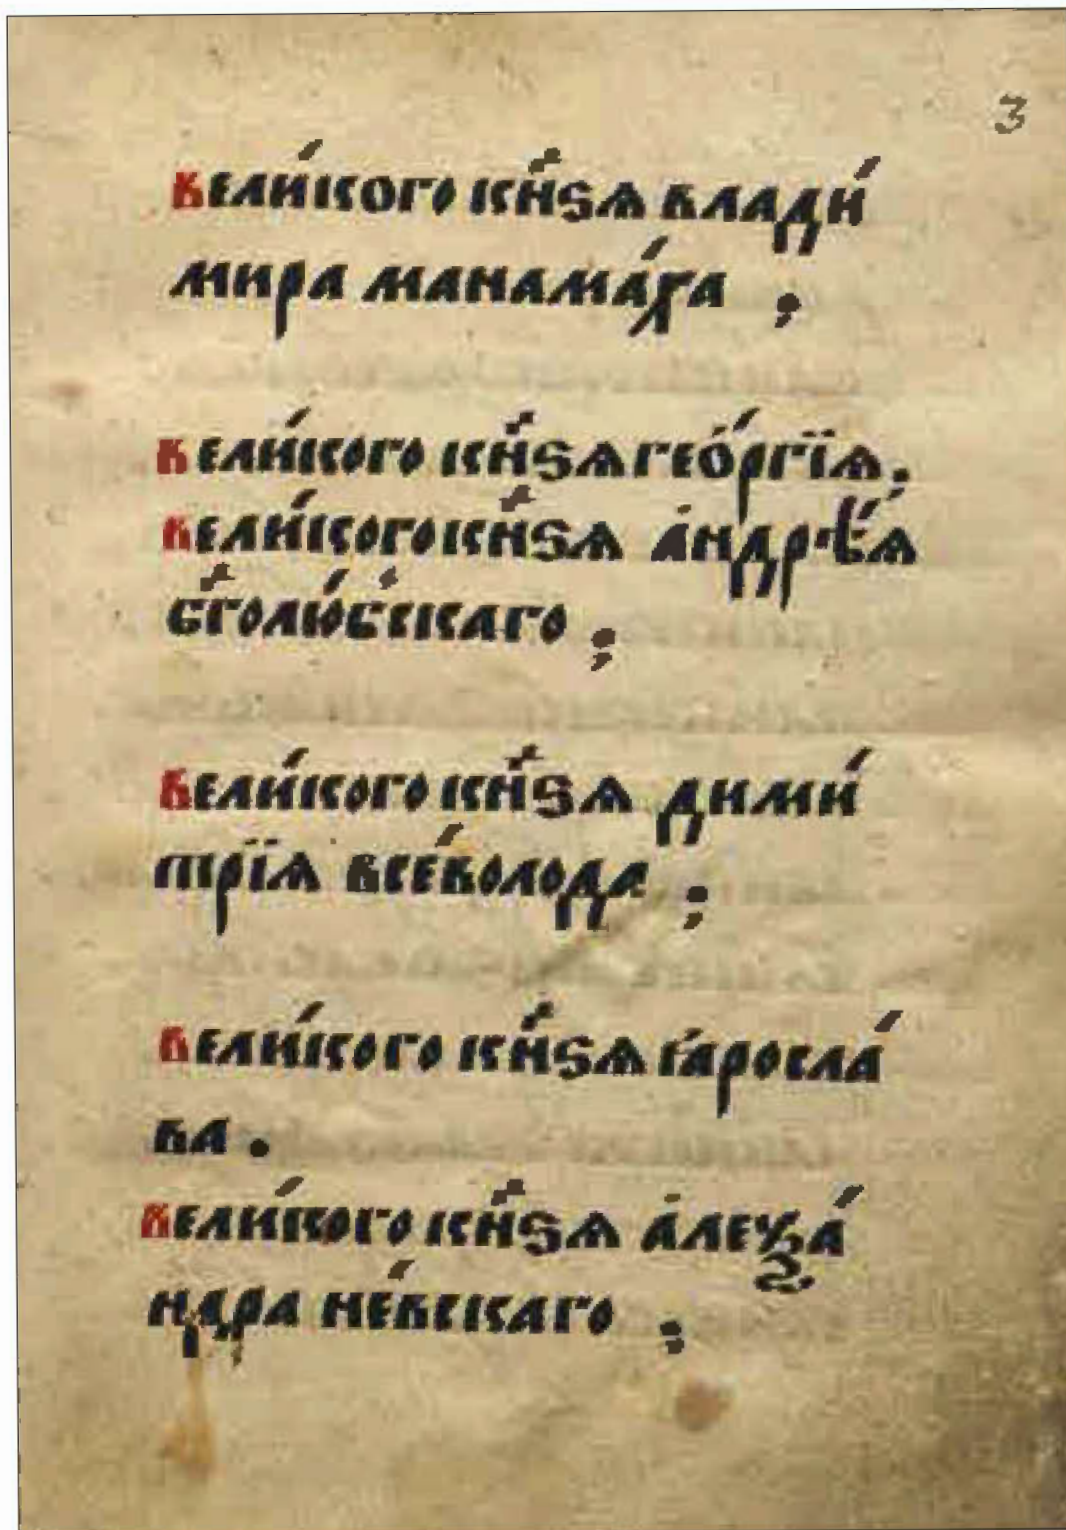 3
Вели́кого кн҃ѕѧ влади́
мира манама́ха ;
Вели́кого кн҃ѕѧ гео́ргїѧ .
Вели́кого кн҃ѕѧ андрѣ́ѧ
бг҃олю́бскаго ;
Вели́кого кн҃ѕѧ дими́
трїѧ все́волода ;
Вели́кого кн҃ѕѧ ꙗросла́
ва .
Вели́кого кн҃ѕѧ алеѯа́
ндра не́вскаго ;